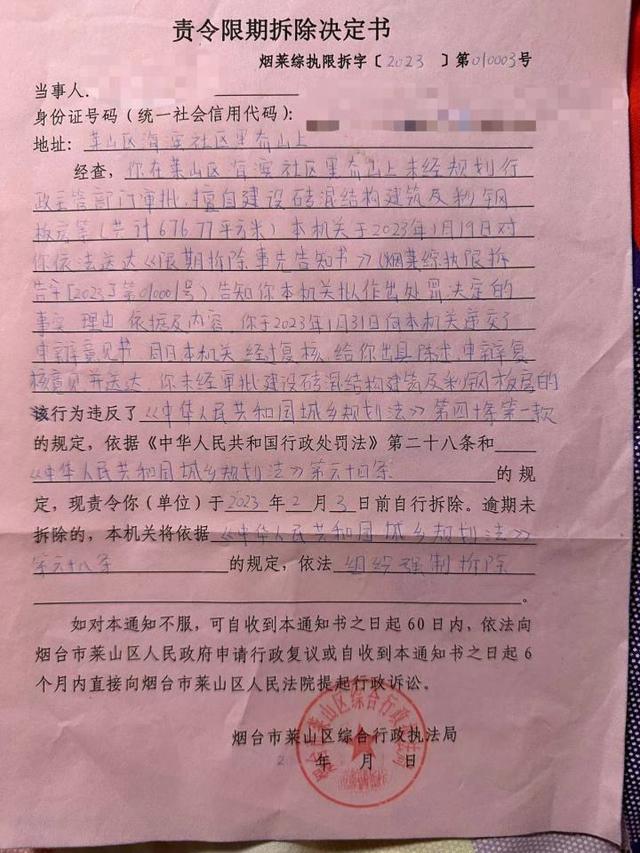 责令限期拆除决定书
烟莱综执限拆字〔2023〕第010003号
当事人.
身份证号码（统一社会信用代码）:
地址: 莱山区海滨社区里夼山上
经查，你在莱山区海滨社区里夼山上未经规划行
政主管部门审批,擅自建设砖混结构建筑及彩钢
板房等(共计676.77平方米)本机关于2023年1月19日对
你依法送达《限期拆除事先告知书》(烟莱综执限拆
告字[2023]第01001号),告知你本机关拟作出处罚决定的
事实、理由、依据及内容,你于2023年1月31日向本机关递交了
申辩意见书,同日本机关经过复核,给你出具陈述、申辩复
核意见并送达,你未经审批建设砖混结构建筑及彩钢板房的
该行为违反了《中华人民共和国城乡规划法》第四十条第一款
的规定，依据《中华人民共和国行政处罚法》第二十八条和
《中华人民共和国城乡规划法》第六十四条 的规
定，现责令你（单位）于2023年2月3日前自行拆除。逾期未
拆除的，本机关将依据《中华人民共和国城乡规划法》
第六十八条 的规定，依法 组织强制拆除
如对本通知不服，可自收到本通知书之日起60日内，依法向
烟台市莱山区人民政府申请行政复议或自收到本通知书之日起6
个月内直接向烟台市莱山区人民法院提起行政诉讼。
烟台市莱山区综合行政执法局
年 月 日
烟台市莱山区综合行政执法局